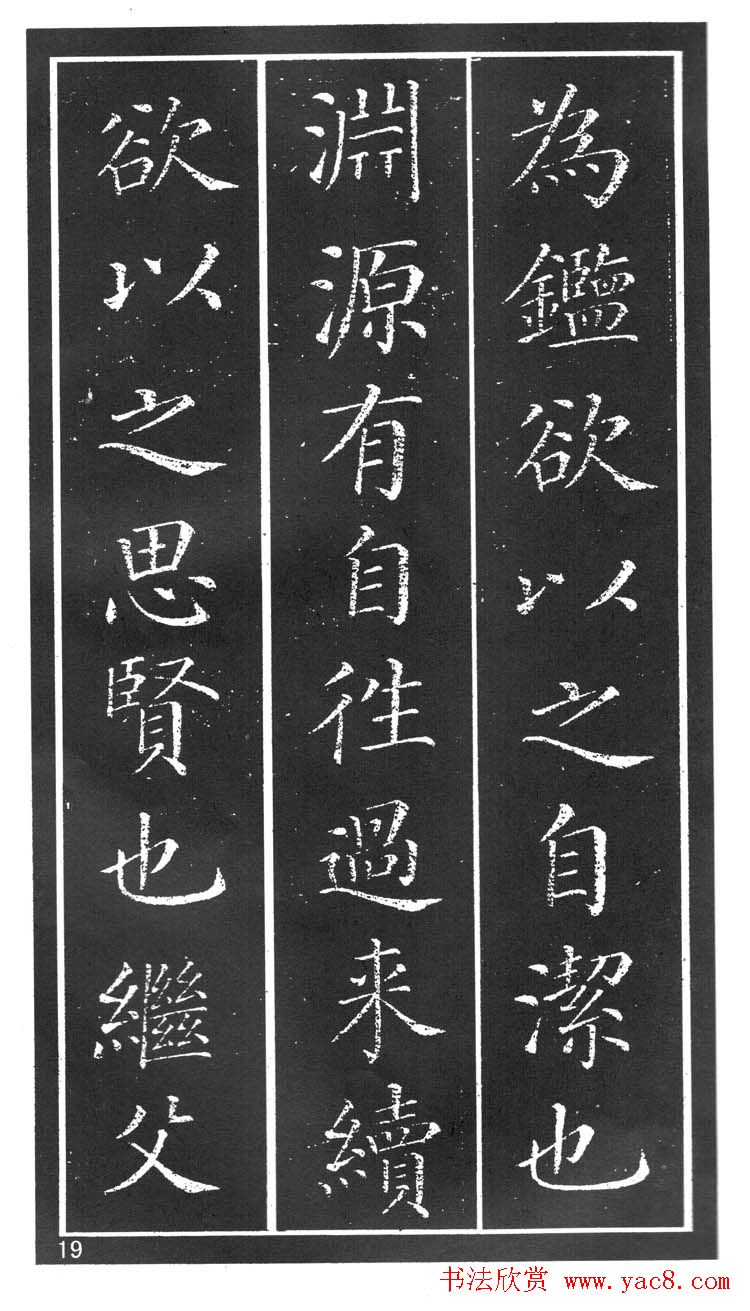 為鑑欲以之自潔也
淵源有自往過来續
欲以之思賢也繼父
19
书法欣赏 www.yac8.com